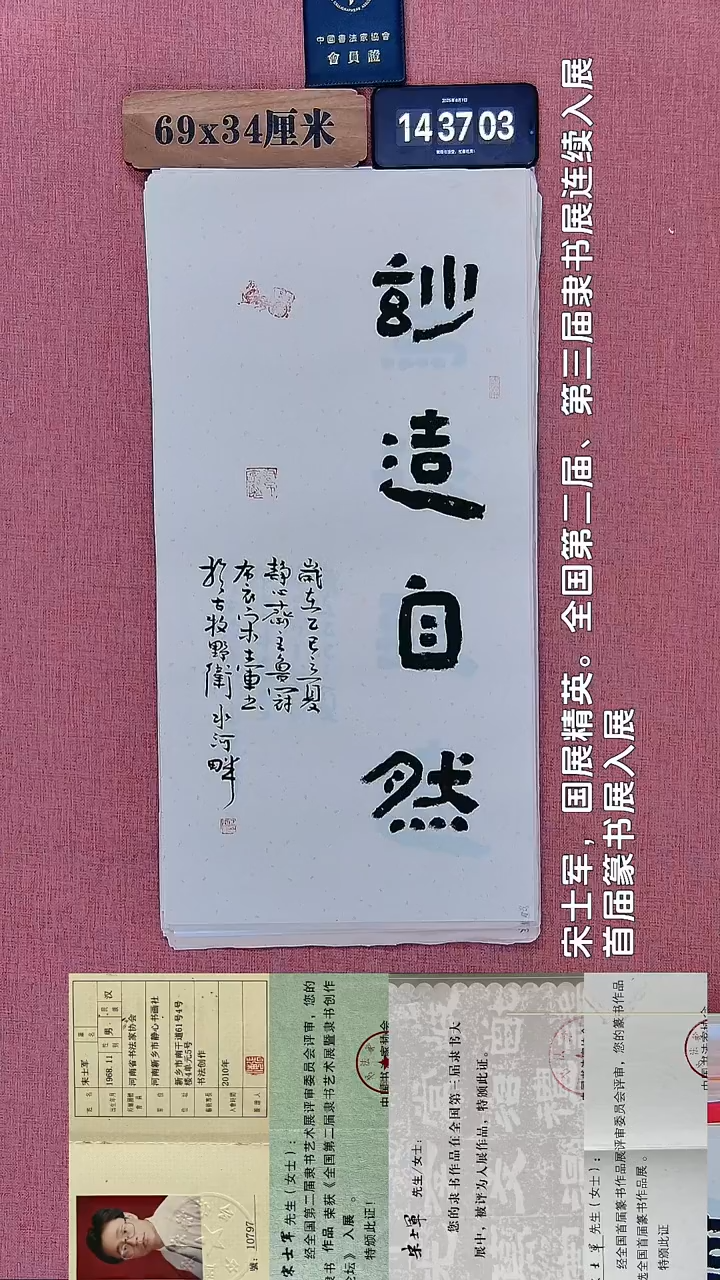 中國書法家協會
會員證
69x34厘米
14 37 03
訬造自然
歲在乙巳之夏
靜心齋主魯冠
布衣宋士軍書
於古牧野衛水河畔
宋士军，国展精英。全国第二届、第三届隶书展连续入展
首届篆书展入展
姓名 宋士军
出生年月 1968.11 性别 男 民族 汉
河南省书法家协会
河南新乡市静心书画社
新乡市南干道61号4号
楼4单元5号
书法创作
2010年
號：10797
宋士军 先生（女士）：
经全国第二届隶书艺术展评审委员会评审，您的
隶书 作品 荣获《全国第二届隶书艺术展暨隶书创作
论坛》 入展 。
特颁此证！
宋士軍 先生/女士：
您的隶书作品在全国第三届隶书大
展中，被评为入展作品，特颁此证。
士军 先生（女士）：
经全国首届篆书作品展评审委员会评审，您的篆书作品
全国首届篆书作品展 。
特颁此证